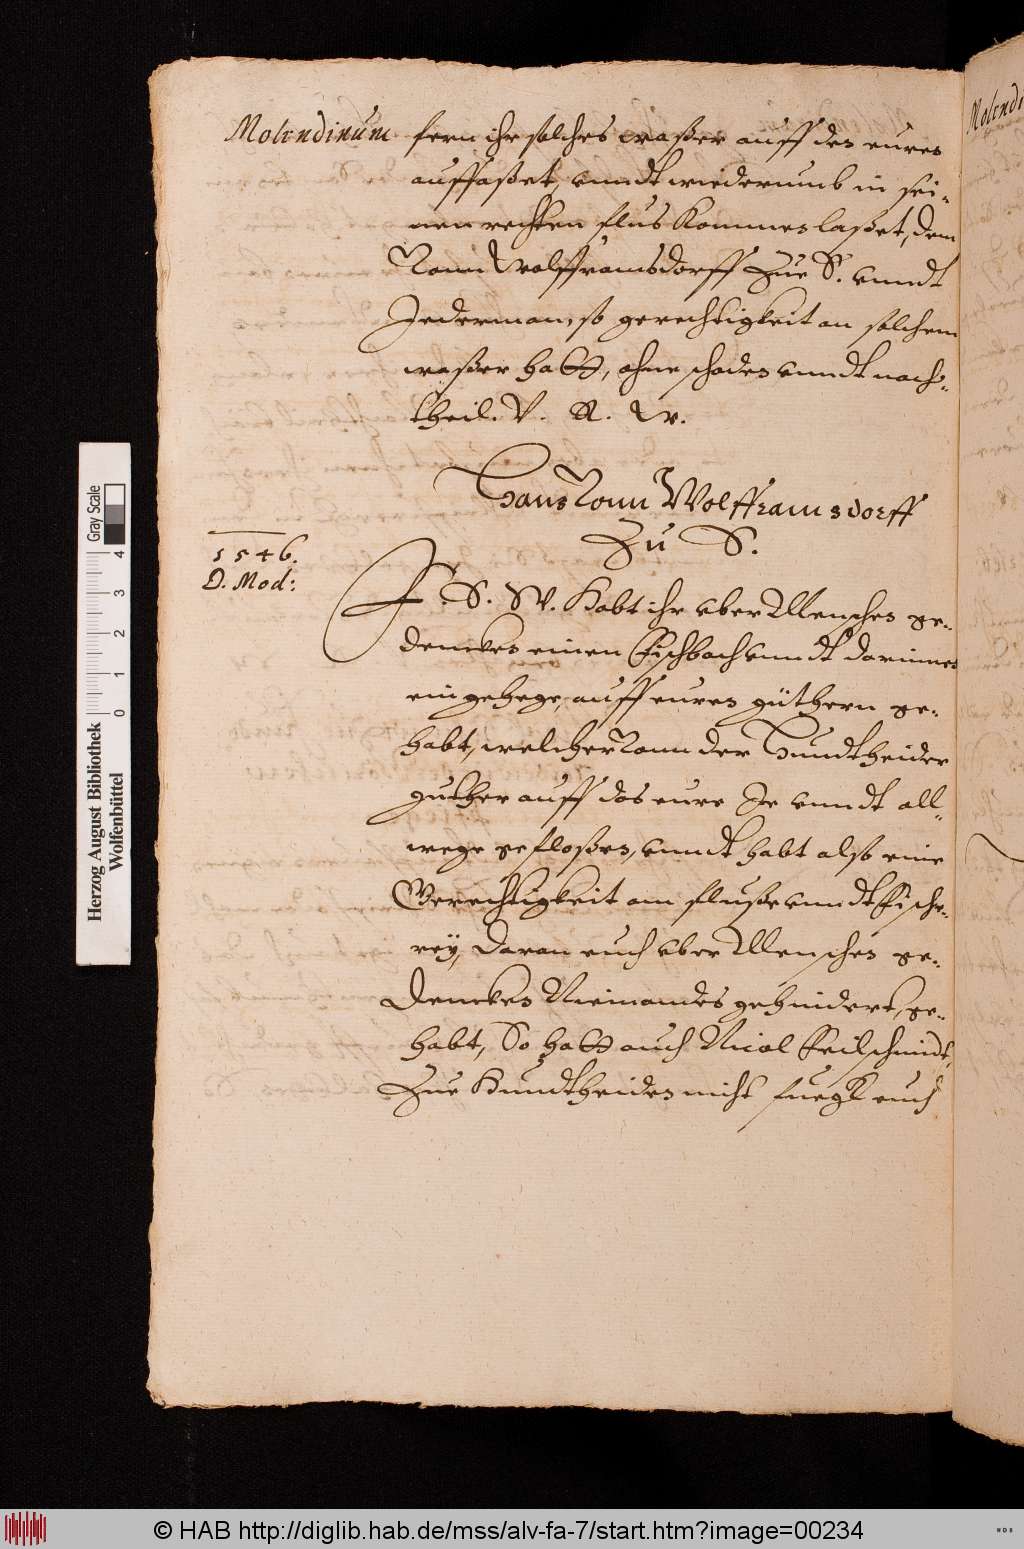 Molendinum
fern ihr solches waßer auff den euren
auffaßet, vnndt wiederumb in sei-
nen rechten flus kommen laßet, dem
vonn Wolfframsdorff Zue S. vnndt
Jederman, so gerechtigkeit an solchem
waßer hatt, ohne schaden vnndt nach-
theil. V. R. W.
Hans vonn Wolfframsdorff
Zu S.
1546.
D. Mod:
S. W. Habt ihr vber Menschen ge-
dencken einen Fischbach vnndt darinnen
ein gehege, auff euren güthern ge-
habt, welcher vonn der Hundtheider
guther auff das eure Je vnndt all-
wege gefloßen, vnndt habt also eine
Gerechtigkeit am fluße vnndt Fische-
rey, daran euch vber Menschen ge-
dencken Niemandes gehindert, ge-
habt, So hatt auch Nicol Feilschmidt,
Zue Hundtheiden nicht fuegk euch
Herzog August Bibliothek
Wolfenbüttel
Gray Scale
0 1 2 3 4
© HAB http://diglib.hab.de/mss/alv-fa-7/start.htm?image=00234